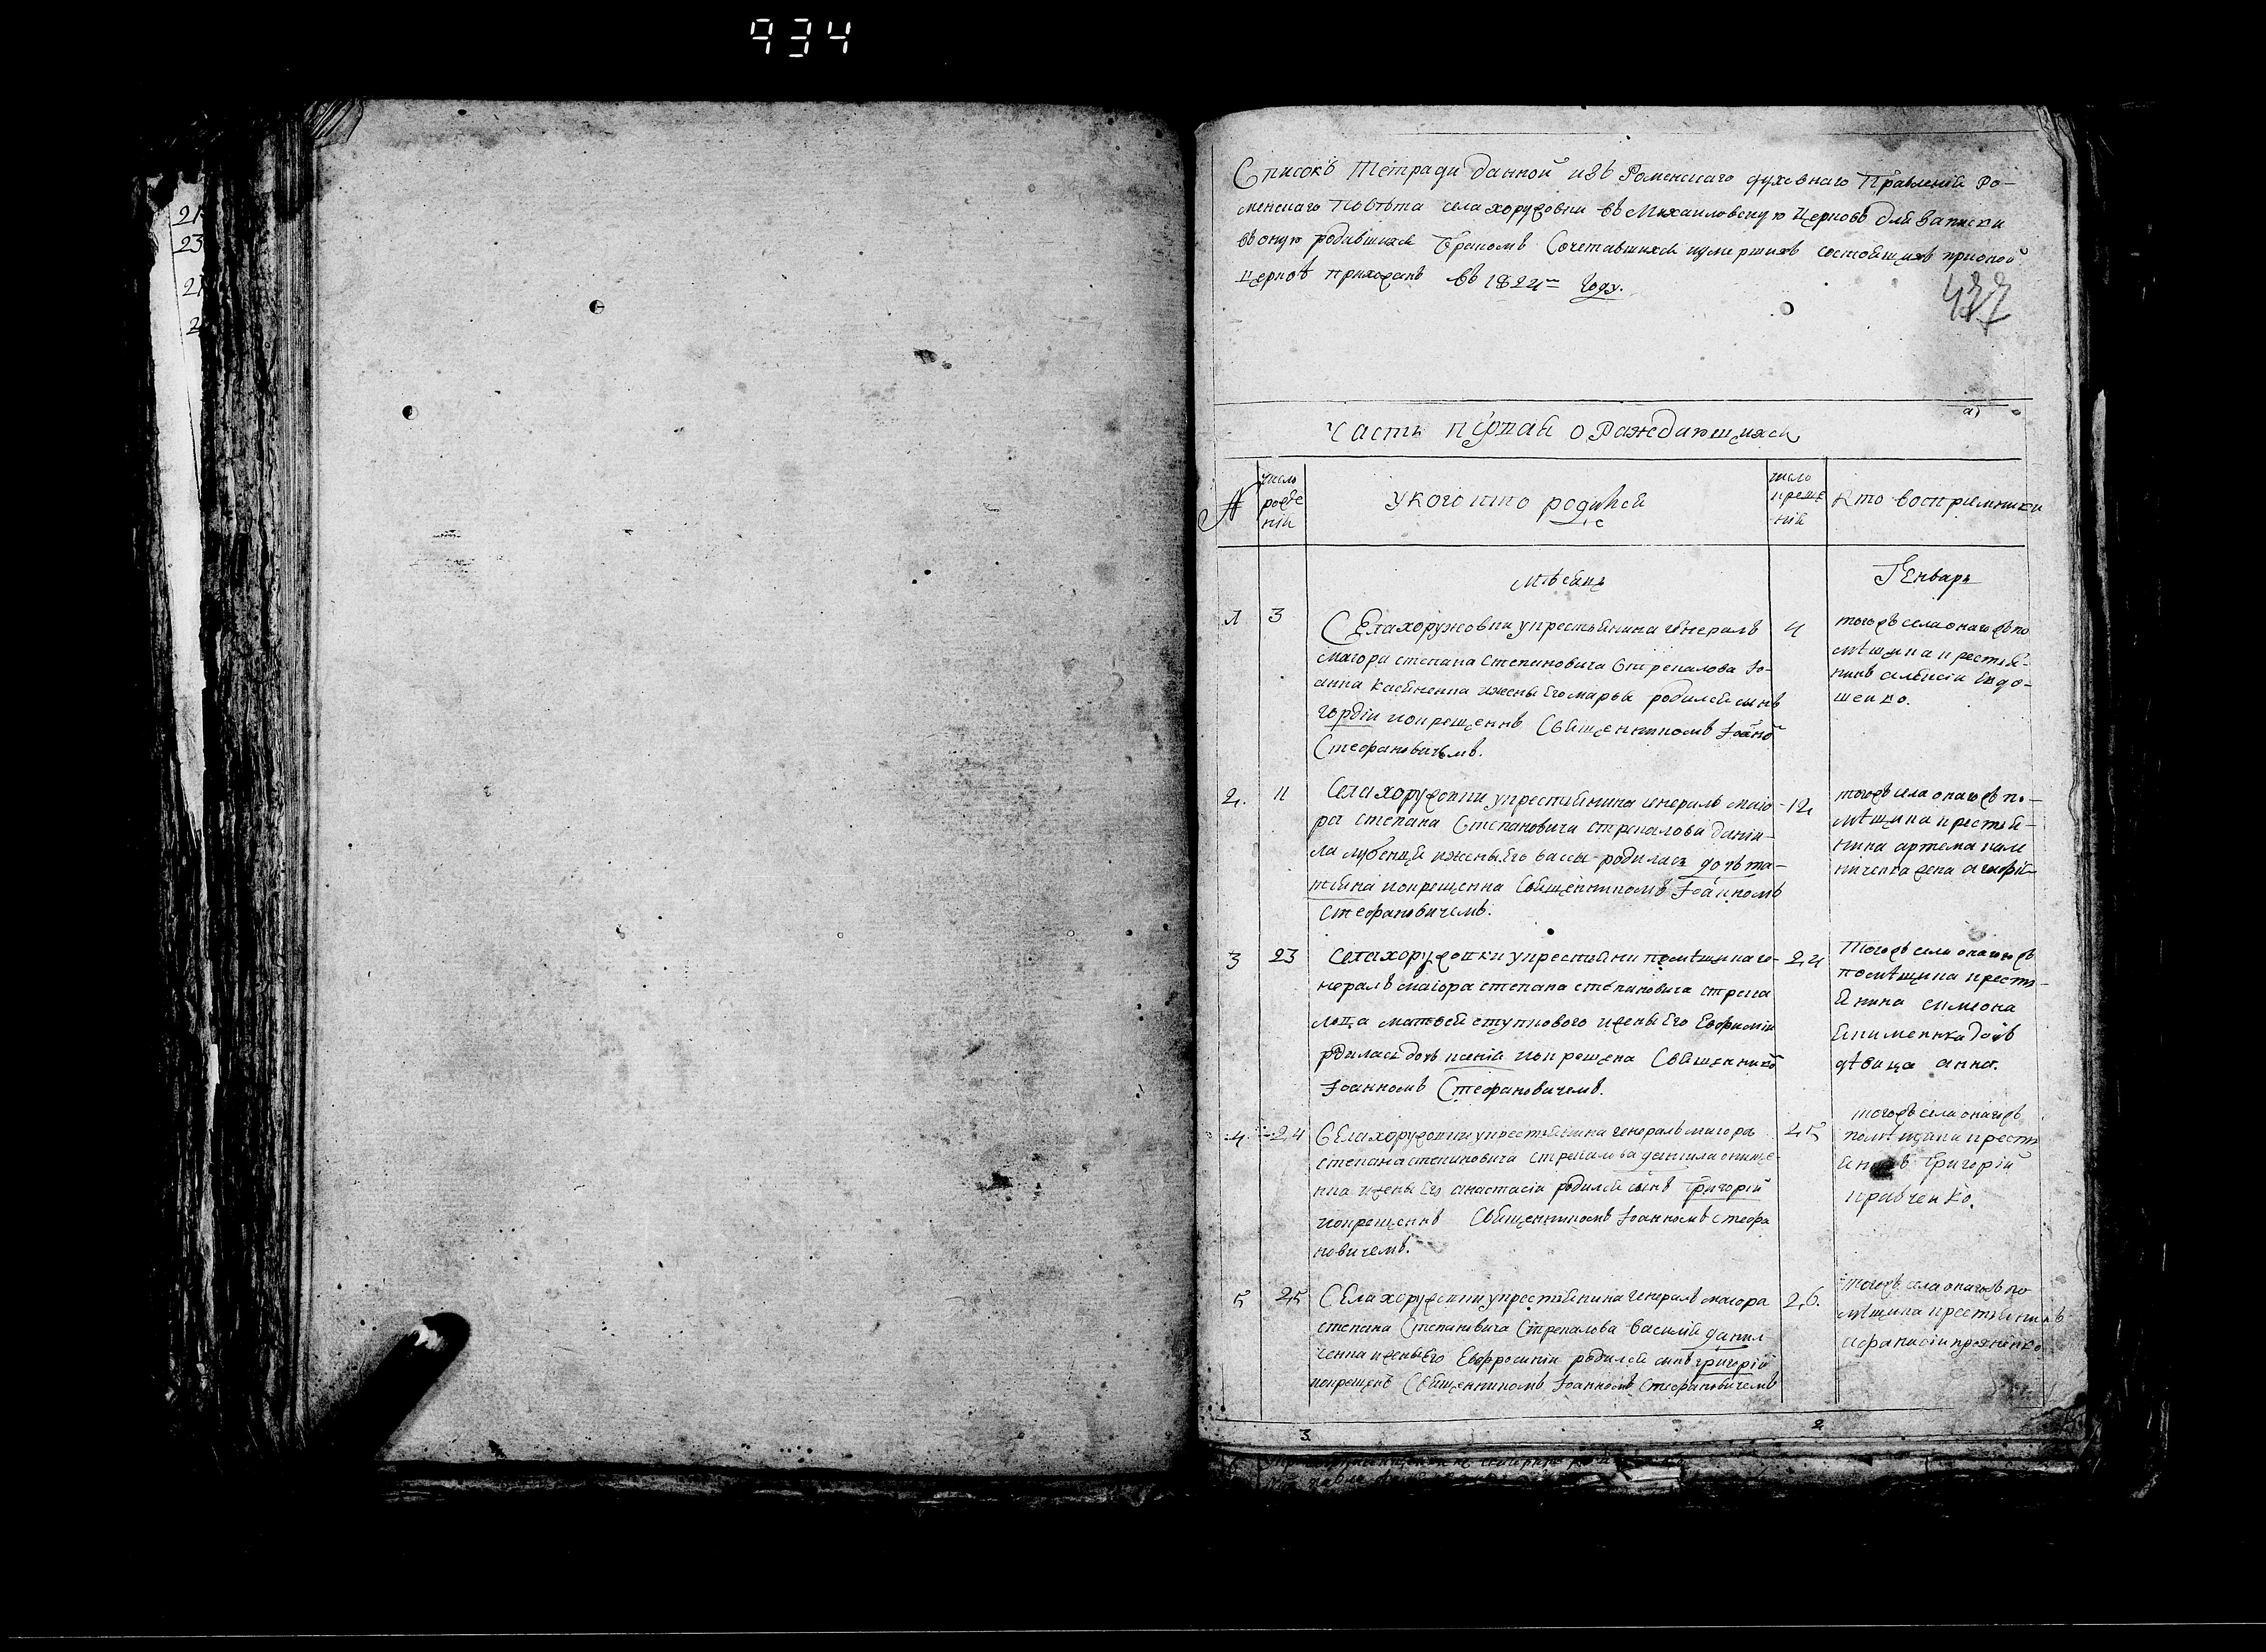 934
21
23
21
2
Списокъ Тетради данной изъ Роменскаго духовнаго Правленія Ро-
менскаго Повѣта села хоружовки въ Михаиловскую Церковь для записки
въ оную родившихся бракомъ Сочетавшихся иумершихъ состоящихъ прионой
Церквѣ прихожанъ въ 1824м Году.
437
а)
Часть первая о Раждающихся
№
число рожде нія
укого кто родился
число креще нія
Кто воспріемники
Мѣсяцъ
Генварь
1
3
СЕла хоружовки укрестьянина генералъ
маіора степана Степановича Стрекалова Іо-
анна Касяненка ижены Его марьи родился сынъ
гордій икрещенъ Священникомъ Іоано
Стефановичемъ.
4
тогожъ села онагожъ по
мѣщика крестья-
нинъ алексій Евдо-
шенко.
2.
11
Села хоружовки укрестьянина генералъ маіо-
ра степана Степановича стрекалова даніи-
ла лубенця ижены Его вассы родилась дочь та-
тіяна икрещенна Священникомъ Іоанномъ
Стефановичемъ.
12
тогожъ села онагожъ по-
мѣщика крестья-
нина артема
жена агафія
3
23
села хоружовки укрестьяни помѣщика ге-
нералъ маіора степана степановича стрека
лова матвея ступкового ижены Его Евфиміи
родилась дочь ксенія икрещена Священнико
Іоанномъ Стефановичемъ.
24
Тогожъ села онагожъ
помѣщика кресть-
янина симеона
якименка дочь
дѣвица анна.
4.
24
СЕла хоружовки укрестьянина генералъ маіора
степана степановича стрекалова даніила онище-
нка ижены Его анастасіи родился сынъ Григорій
икрещенъ Священникомъ Іоанномъ стефа
новичемъ.
25
тогожъ села онагожъ
помѣщика кресть
янинъ Григорій
кравченко.
5
25
СЕла хоружовки укрестьянина генералъ маіора
степана Степановича Стрекалова василія данил
ченка ижены Его Евфросиніи родился синъ григорій
икрещенъ Священникомъ Іоанномъ Стефановичемъ
26.
тогожъ села онагожъ по
мѣщика крестьянинъ
афанасій
3
2